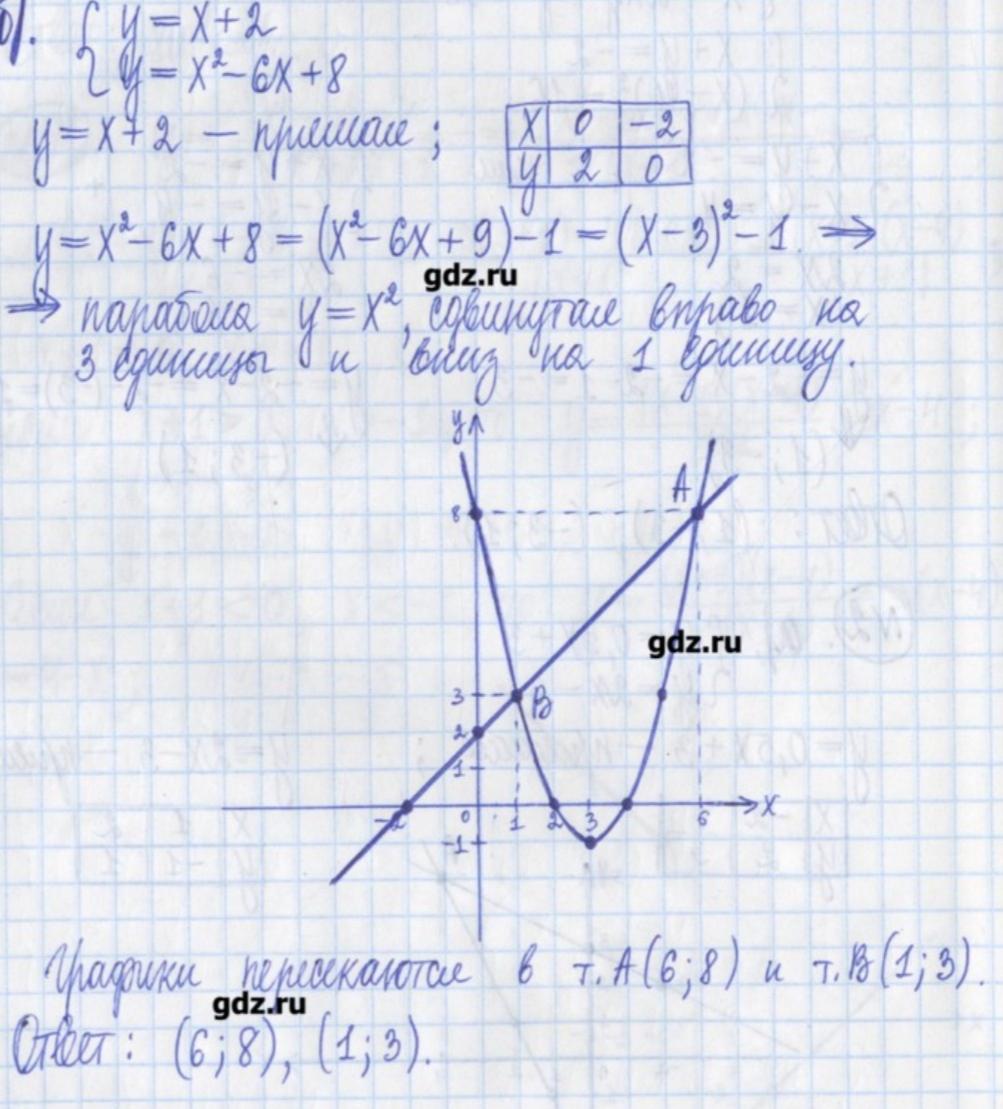 б). { y = x + 2
y = x² - 6x + 8
y = x + 2 — прямая ;
x 0 -2
y 2 0
y = x² - 6x + 8 = (x² - 6x + 9) - 1 = (x - 3)² - 1 ⇒
gdz.ru
⇒ парабола y = x², сдвинутая вправо на
3 единицы и вниз на 1 единицу.
y
A
8
gdz.ru
3 B
2
1
-2 0 1 2 3 6 x
-1
Графики пересекаются в т. A(6; 8) и т. B(1; 3).
gdz.ru
Ответ: (6; 8), (1; 3).